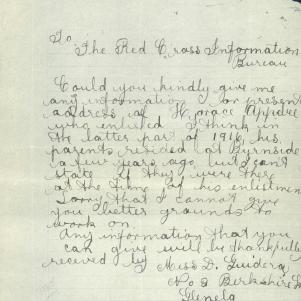 To
The Red Cross Information
Bureau
Could you kindly give me
any information or present
address of Horace Appdie
who enlisted I think in
the latter part of 1916, his
parents resided at Burnside
a few years ago, but I cant
state if they were there
at the time of his enlistment
Sorry that I cannot give
you better grounds to
work on.
Any information that you
can give will be thankfully
received by
Miss D. Guidera
No 2 Berkshire
Glenelg